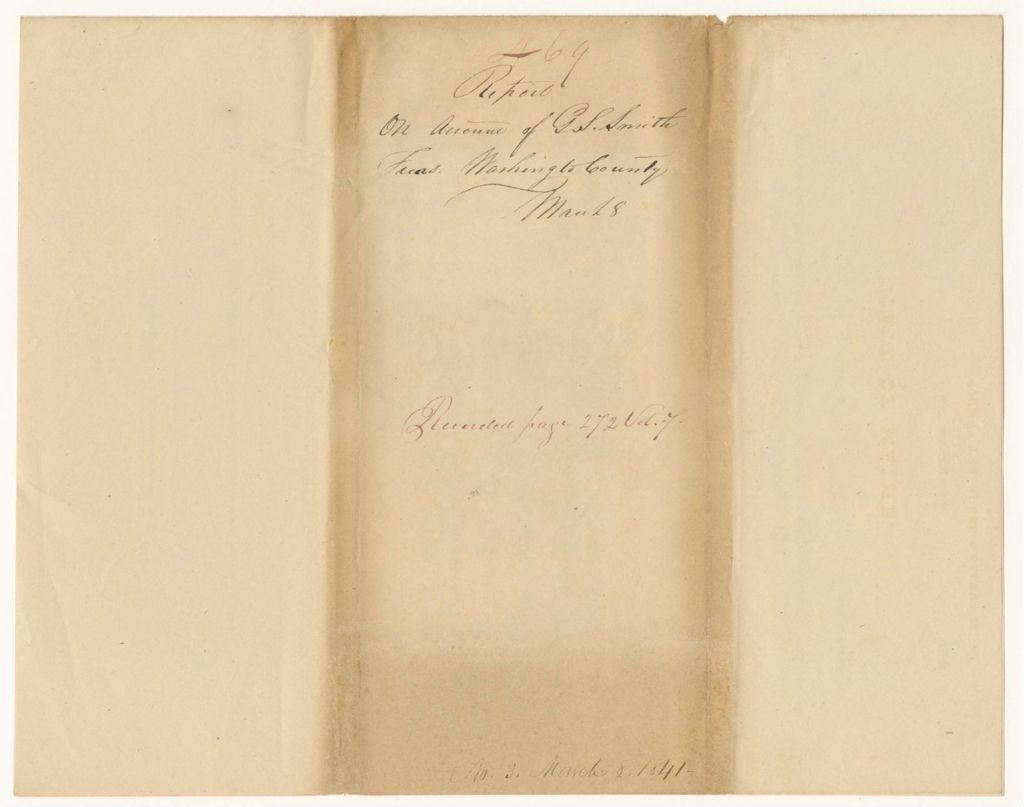 469
Report
On Account of G. S. Smith
Treas. Washington County
March 8
Recorded page 272 Vol. 7.
No. 3. March 8. 1841-